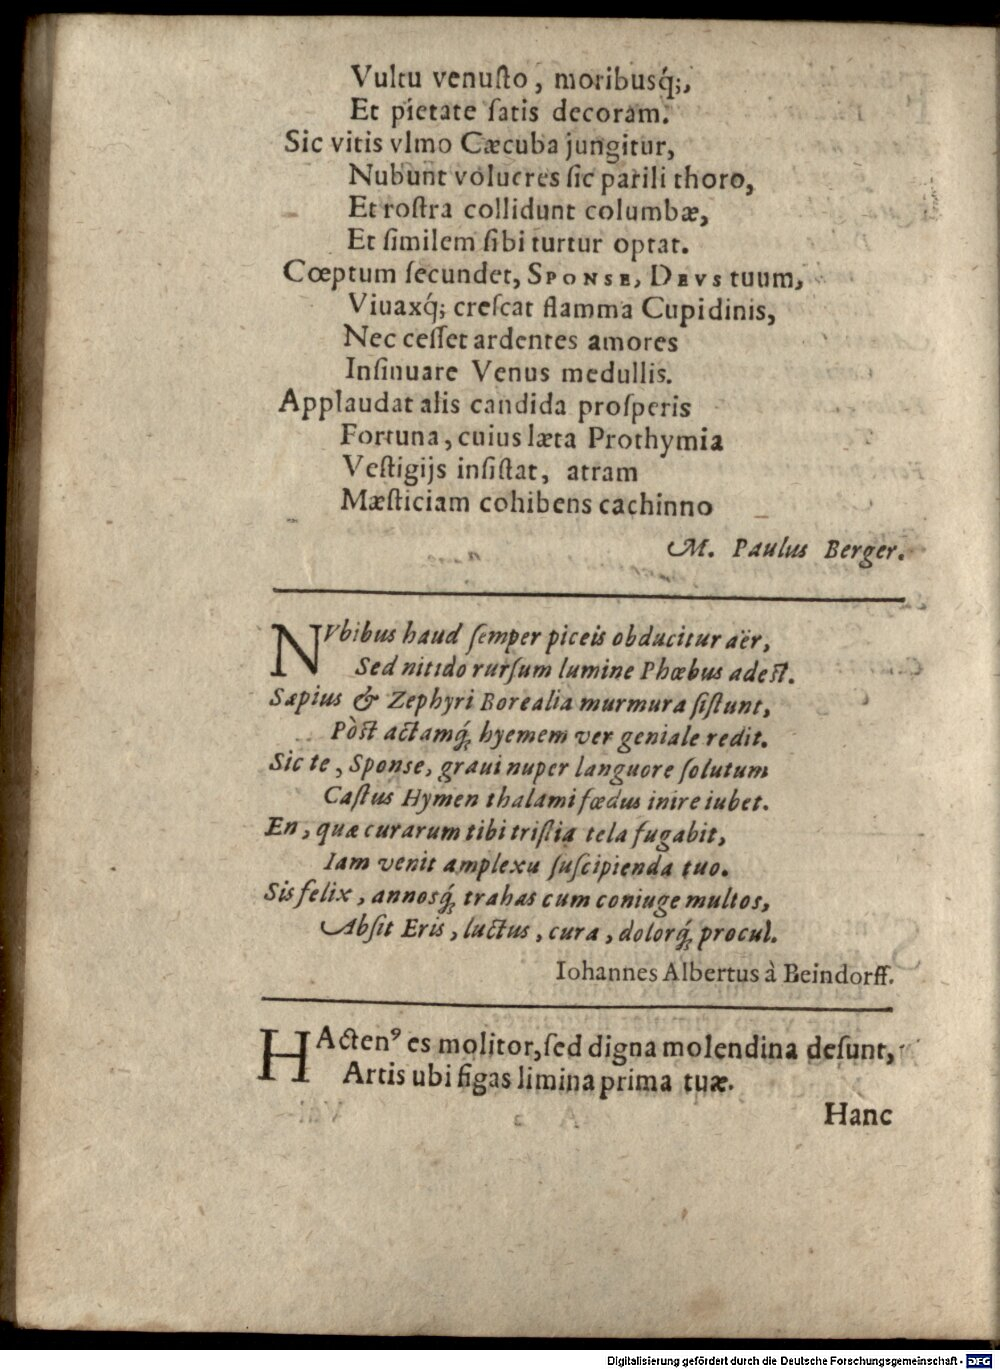 Vultu venuſto, moribusq́;,
Et pietate ſatis decoram.
Sic vitis vlmo Cæcuba jungitur,
Nubunt volucres ſic parili thoro,
Et roſtra collidunt columbæ,
Et ſimilem ſibi turtur optat.
Cœptum ſecundet, SPONSE, DEVS tuum,
Viuaxq́; creſcat flamma Cupidinis,
Nec ceſſet ardentes amores
Inſinuare Venus medullis.
Applaudat alis candida proſperis
Fortuna, cuius læta Prothymia
Veſtigijs inſiſtat, atram
Mæſticiam cohibens cachinno
M. Paulus Berger.
NVbibus haud ſemper piceis obducitur aër,
Sed nitido rurſum lumine Phœbus adeſt.
Sæpius & Zephyri Borealia murmura ſiſtunt,
Pòſt actamq́; hyemem ver geniale redit.
Sic te, Sponse, graui nuper languore ſolutum
Caſtus Hymen thalami fœdus inire iubet.
En, quæ curarum tibi triſtia tela fugabit,
Iam venit amplexu ſuſcipienda tuo.
Sis felix, annosq́; trahas cum coniuge multos,
Abſit Eris, luctus, cura, dolorq́; procul.
Iohannes Albertus à Beindorff.
HActenꝰ es molitor, ſed digna molendina deſunt,
Artis ubi figas limina prima tuæ.
Hanc
Digitalisierung gefördert durch die Deutsche Forschungsgemeinschaft - DFG